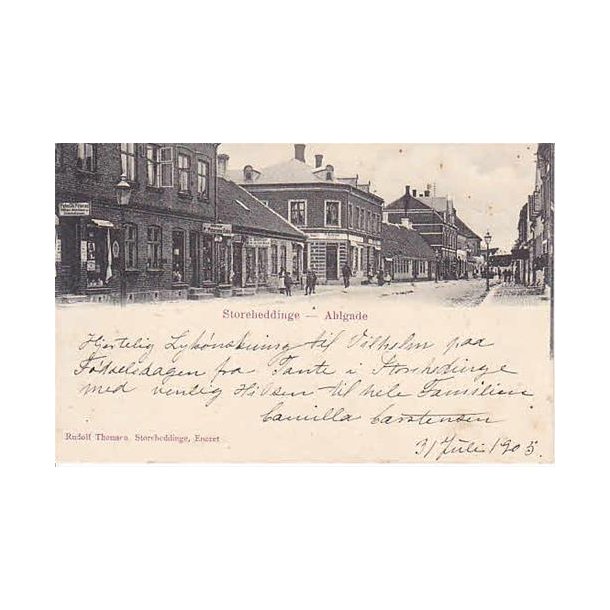 Storeheddinge — Ahlgade
Hjertelig Lykønskning til Vilhelm paa
Fødselsdagen fra Tante i Storehedinge
med venlig Hilsen til hele Familien
Camilla Carstensen
31 Juli 1905.
Rudolf Thomsen, Storeheddinge, Eneret